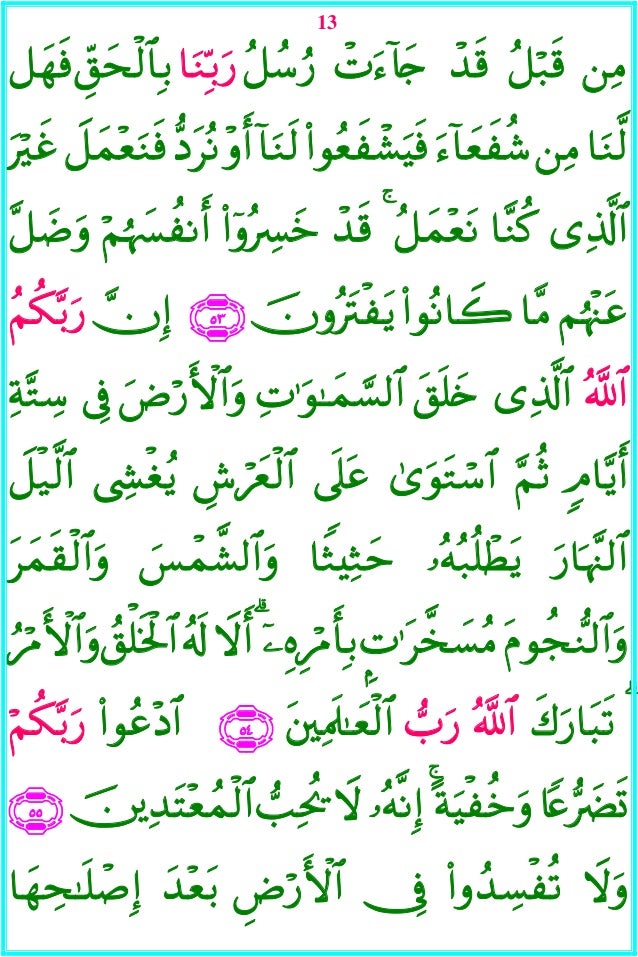 13
مِن قَبْلُ قَدْ جَآءَتْ رُسُلُ رَبِّنَا بِٱلْحَقِّ فَهَل
لَّنَا مِن شُفَعَآءَ فَيَشْفَعُوا۟ لَنَآ أَوْ نُرَدُّ فَنَعْمَلَ غَيْرَ
ٱلَّذِى كُنَّا نَعْمَلُ ۚ قَدْ خَسِرُوٓا۟ أَنفُسَهُمْ وَضَلَّ
عَنْهُم مَّا كَانُوا۟ يَفْتَرُونَ ٥٣ إِنَّ رَبَّكُمُ
ٱللَّهُ ٱلَّذِى خَلَقَ ٱلسَّمَـٰوَٰتِ وَٱلْأَرْضَ فِى سِتَّةِ
أَيَّامٍ ثُمَّ ٱسْتَوَىٰ عَلَى ٱلْعَرْشِ يُغْشِى ٱلَّيْلَ
ٱلنَّهَارَ يَطْلُبُهُۥ حَثِيثًا وَٱلشَّمْسَ وَٱلْقَمَرَ
وَٱلنُّجُومَ مُسَخَّرَٰتٍۭ بِأَمْرِهِۦٓ ۗ أَلَا لَهُ ٱلْخَلْقُ وَٱلْأَمْرُ
ۗ تَبَارَكَ ٱللَّهُ رَبُّ ٱلْعَـٰلَمِينَ ٥٤ ٱدْعُوا۟ رَبَّكُمْ
تَضَرُّعًا وَخُفْيَةً ۚ إِنَّهُۥ لَا يُحِبُّ ٱلْمُعْتَدِينَ ٥٥
وَلَا تُفْسِدُوا۟ فِى ٱلْأَرْضِ بَعْدَ إِصْلَـٰحِهَا